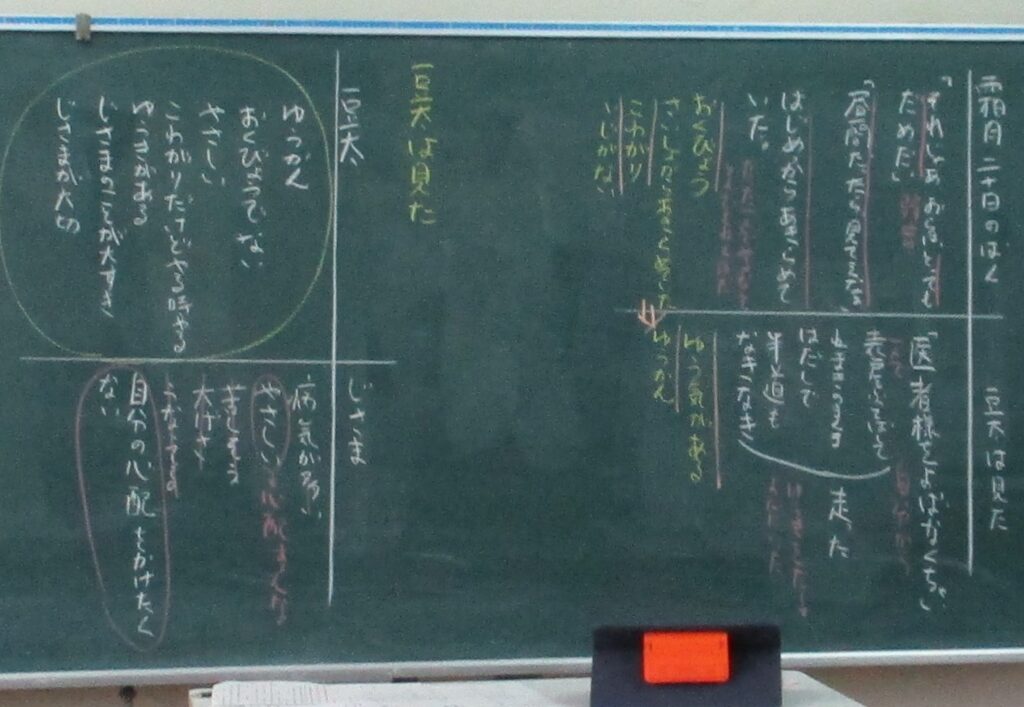 霜月二十日のばん
豆太は見た
「それじゃあおらは、とても
だめだ」
「昼間だったら見てえなあ」
はじめからあきらめて
いた。
おくびょう
さいしょからあきらめていた
こわがり
いじがない
「医者様をよばなくちゃ」
表戸をふっとばして
ねまきのまま
はだしで
半道も
なきなき
走った
ゆう気がある
ゆうかん
豆太は見た
豆太
ゆうかん
おくびょうでない
やさしい
こわがりだけどやる時やる
ゆうきがある
じさまのことが大すき
じさまが大切
じさま
病気が多い
やさしい
苦しそう
大げさ
自分の心配をかけたく
ない